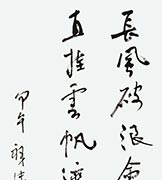 長風破浪會
直挂雲帆濟
甲午